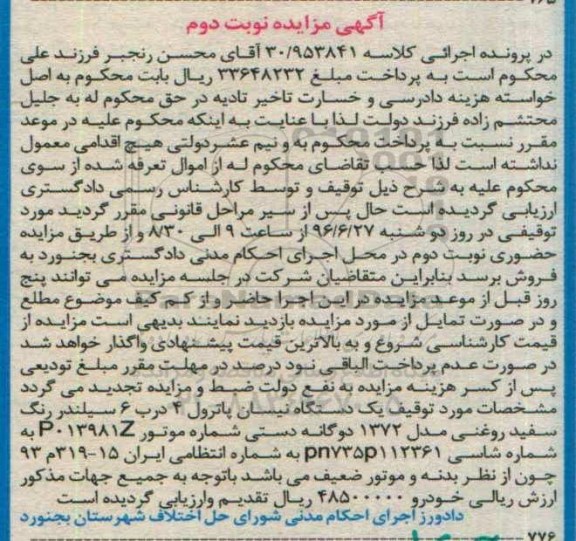 ۷۶۵
آگهی مزایده نوبت دوم
در پرونده اجرائی کلاسه ۳۰/۹۵۳۸۴۱ آقای محسن رنجبر فرزند علی
محکوم است به پرداخت مبلغ ۳۳۶۴۸۲۳۲ ریال بابت محکوم به اصل
خواسته هزینه دادرسی و خسارت تاخیر تادیه در حق محکوم له به جلیل
محتشم زاده فرزند دولت لذا با عنایت به اینکه محکوم علیه در موعد
مقرر نسبت به پرداخت محکوم به و نیم عشردولتی هیچ اقدامی معمول
نداشته است لذا حسب تقاضای محکوم له از اموال تعرفه شده از سوی
محکوم علیه به شرح ذیل توقیف و توسط کارشناس رسمی دادگستری
ارزیابی گردیده است حال پس از سیر مراحل قانونی مقرر گردید مورد
توقیفی در روز دو شنبه ۹۶/۶/۲۷ از ساعت ۹ الی ۸/۳۰ و از طریق مزایده
حضوری نوبت دوم در محل اجرای احکام مدنی دادگستری بجنورد به
فروش برسد بنابراین متقاضیان شرکت در جلسه مزایده می توانند پنج
روز قبل از موعد مزایده در این اجرا حاضر و از کم کیف موضوع مطلع
و در صورت تمایل از مورد مزایده بازدید نمایند بدیهی است مزایده از
قیمت کارشناسی شروع و به بالاترین قیمت پیشنهادی واگذار خواهد شد
در صورت عدم پرداخت الباقی نود درصد در مهلت مقرر مبلغ تودیعی
پس از کسر هزینه مزایده به نفع دولت ضبط و مزایده تجدید می گردد
مشخصات مورد توقیف یک دستگاه نیسان پاترول ۴ درب ۶ سیلندر رنگ
سفید روغنی مدل ۱۳۷۲ دوگانه دستی شماره موتور P۰۱۳۹۸۱Z به
شماره شاسی pn۷۳۵p۱۱۲۳۶۱ به شماره انتظامی ایران ۱۵-۳۱۹م ۹۳
چون از نظر بدنه و موتور ضعیف می باشد باتوجه به جمیع جهات مذکور
ارزش ریالی خودرو ۴۸۵۰۰۰۰۰ ریال تقدیم وارزیابی گردیده است
دادورز اجرای احکام مدنی شورای حل اختلاف شهرستان بجنورد
۷۷۶